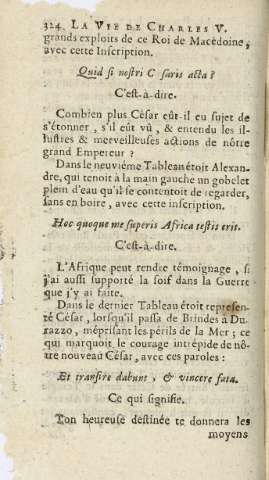 324. LA VIE DE CHARLES V.
grands exploits de ce Roi de Macédoine,
avec cette Inscription.
Quid si nostri C saris acta ?
C'est-à-dire.
Combien plus César eût-il eu sujet de
s'étonner , s'il eût vû , & entendu les il-
lustres & merveilleuses actions de nôtre
grand Empereur ?
Dans le neuviéme Tableau étoit Alexan-
dre, qui tenoit à la main gauche un gobelet
plein d'eau qu'il se contentoit de regarder,
sans en boire , avec cette inscription.
Hoc quoque me superis Africa testis erit.
C'est-à-dire.
L'Afrique peut rendre témoignage , si
j'ai aussi supporté la soif dans la Guerre
que j'y ai faite.
Dans le dernier Tableau étoit represen-
té César , lorsqu'il passa de Brindes à Du-
razzo , méprisant les périls de la Mer ; ce
qui marquoit le courage intrépide de nô-
tre nouveau César, avec ces paroles :
Et transire dabunt , & vincere fata.
Ce qui signifie.
Ton heureuse destinée te donnera les
moyens